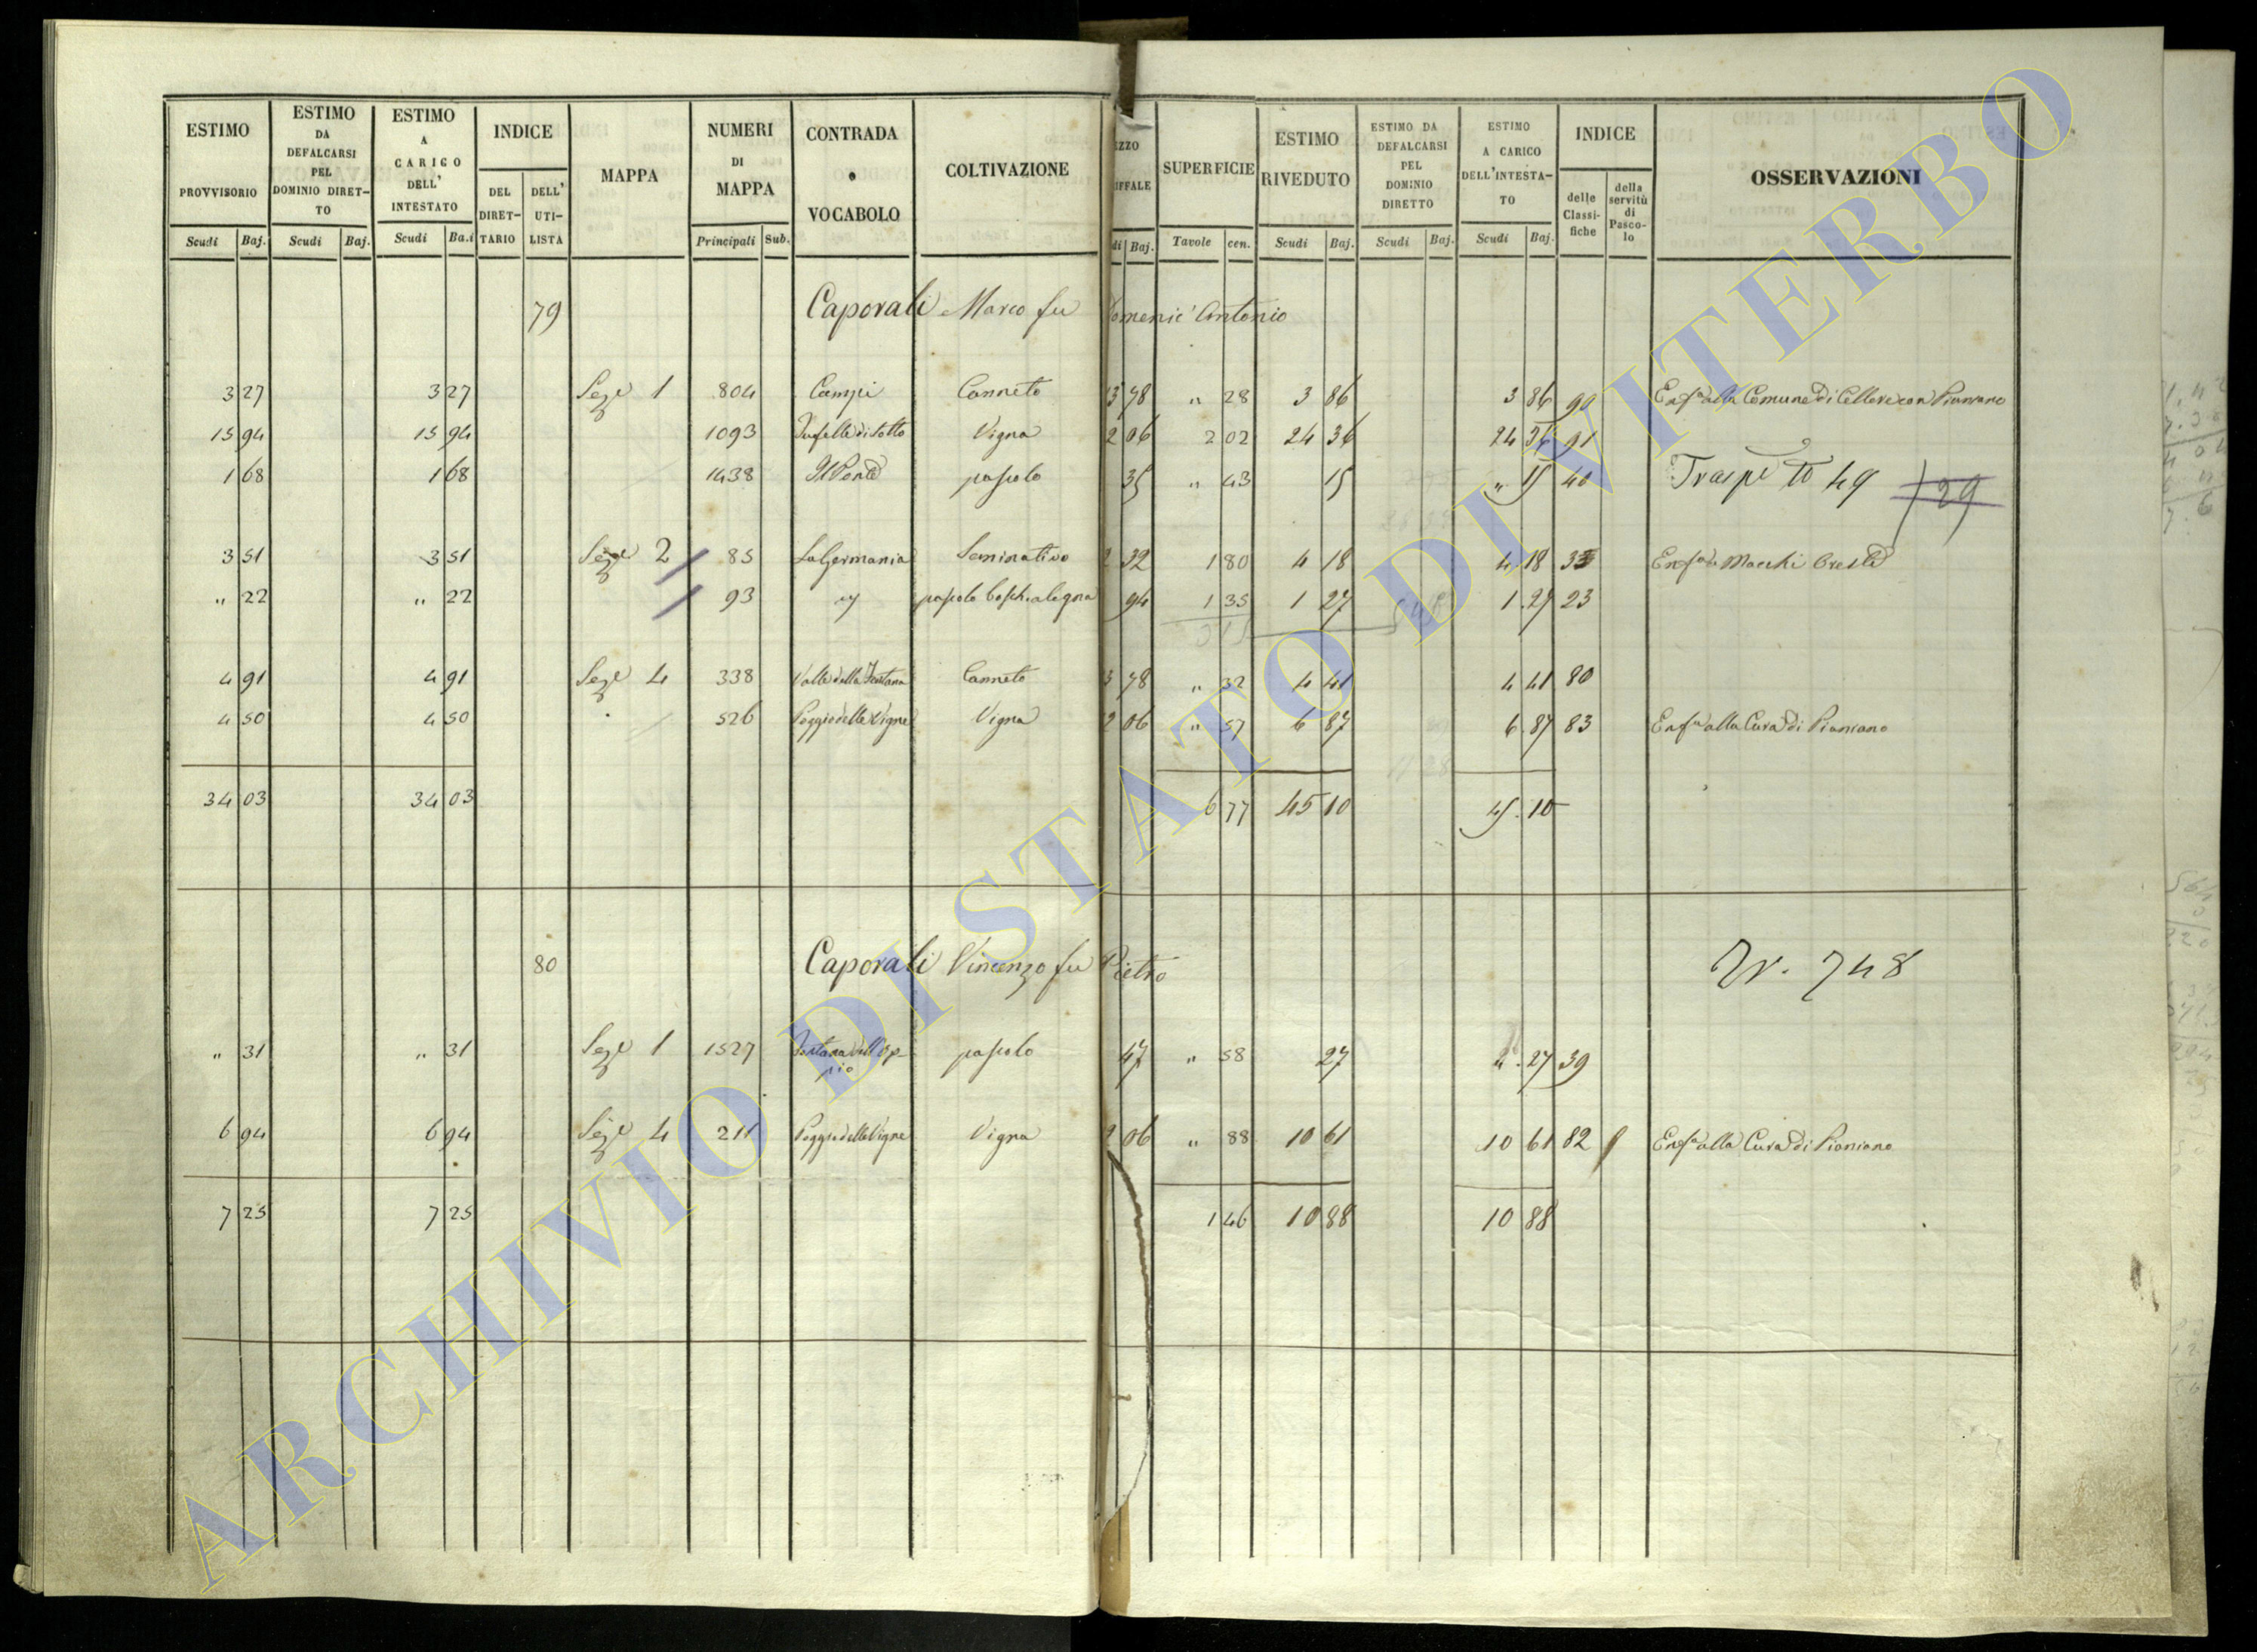 ESTIMO PROVVISORIO Scudi Baj.
ESTIMO DA DEFALCARSI PEL DOMINIO DIRET- TO Scudi Baj.
ESTIMO A CARICO DELL' INTESTATO Scudi Ba.i
INDICE DEL DIRET- TARIO DELL' UTI- LISTA
MAPPA
NUMERI DI MAPPA Principali Sub.
CONTRADA o VOCABOLO
COLTIVAZIONE
EZZO IFFALE di Baj.
SUPERFICIE Tavole cen.
ESTIMO RIVEDUTO Scudi Baj.
ESTIMO DA DEFALCARSI PEL DOMINIO DIRETTO Scudi Baj.
ESTIMO A CARICO DELL'INTESTA- TO Scudi Baj.
INDICE delle Classi- fiche della servitù di Pasco- lo
OSSERVAZIONI
79 Caporali Marco fu Domenic' Antonio
3 27 3 27 Seze 1 804 Campi Canneto 13 78 " 28 3 86 3 86 90 Enfa alla Comune di Cellere con Pianiano
15 94 15 94 1093 di Sotto Vigna 2 06 2 02 24 36 24 36 91
1 68 1 68 1438 Il Ponte pascolo 35 " 43 15 " 15 40 Trasp to 49 29
3 51 3 51 Seze 2 85 La Germania Seminativo 2 32 1 80 4 18 4 18 33 Enfa Macchi Oreste
" 22 " 22 93 pascolo 94 1 35 1 27 1 27 23
315
4 91 4 91 Seze 4 338 Valle della Fontana Canneto 3 78 " 32 4 41 4 41 80
4 50 4 50 526 Poggio delle Vigne Vigna 2 06 " 57 6 87 6 87 83 Enfa alla Cura di Pianiano
34 03 34 03 6 77 45 10 45 10
80 Caporali Vincenzo fu Pietro Tr. 748
" 31 " 31 Seze 1 1527 Fontana dell'Op- pio pascolo 47 " 58 27 " 27 39
6 94 6 94 Seze 4 211 Poggio delle Vigne Vigna 2 06 " 88 10 61 10 61 82 Enfa alla Cura di Pianiano
7 25 7 25 1 46 10 88 10 88
ARCHIVIO DI STATO DI VITERBO